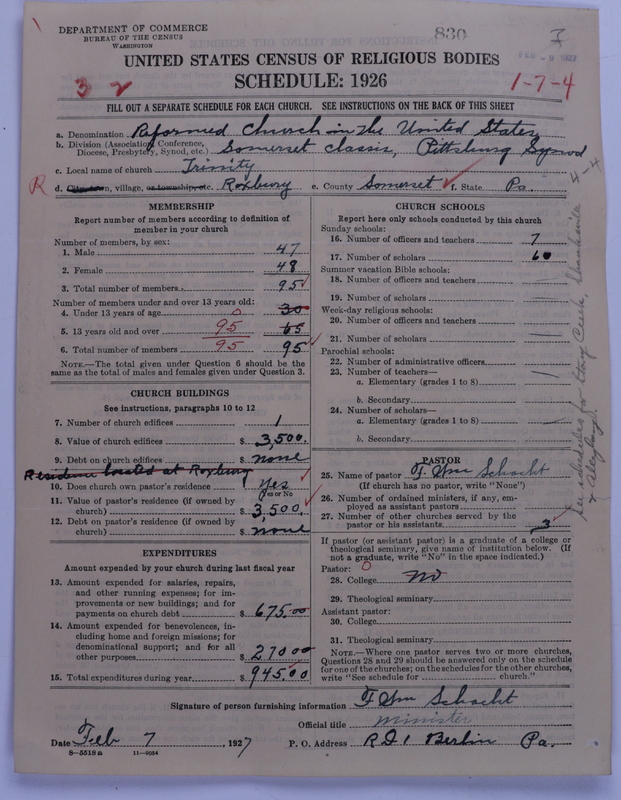 DEPARTMENT OF COMMERCE
BUREAU OF THE CENSUS
WASHINGTON
830
UNITED STATES CENSUS OF RELIGIOUS BODIES
SCHEDULE: 1926
1-7-4
FILL OUT A SEPARATE SCHEDULE FOR EACH CHURCH. SEE INSTRUCTIONS ON THE BACK OF THIS SHEET
a. Denomination Reformed Church in the United States
b. Division (Association, Conference, Diocese, Presbytery, Synod, etc.) Somerset Classis, Pittsburg Synod
c. Local name of church Trinity
R d. City, town, village, or township, etc. Roxbury e. County Somerset f. State Pa.
MEMBERSHIP
Report number of members according to definition of member in your church
Number of members, by sex:
1. Male 47
2. Female 48
3. Total number of members 95
Number of members under and over 13 years old:
4. Under 13 years of age 0 30
5. 13 years old and over 95 65
6. Total number of members 95 95
NOTE.—The total given under Question 6 should be the same as the total of males and females given under Question 3.
CHURCH BUILDINGS
See instructions, paragraphs 10 to 12
7. Number of church edifices 1
8. Value of church edifices $ 3,500.
9. Debt on church edifices $ none
Residence located at Roxbury
10. Does church own pastor's residence Yes
(Yes or No)
11. Value of pastor's residence (if owned by church) $ 3,500.
12. Debt on pastor's residence (if owned by church) $ none
EXPENDITURES
Amount expended by your church during last fiscal year
13. Amount expended for salaries, repairs, and other running expenses; for improvements or new buildings; and for payments on church debt $ 675.00
14. Amount expended for benevolences, including home and foreign missions; for denominational support; and for all other purposes $ 270 00
15. Total expenditures during year $ 945.00
CHURCH SCHOOLS
Report here only schools conducted by this church
Sunday schools:
16. Number of officers and teachers 7
17. Number of scholars 60
Summer vacation Bible schools:
18. Number of officers and teachers
19. Number of scholars
Week-day religious schools:
20. Number of officers and teachers
21. Number of scholars
Parochial schools:
22. Number of administrative officers
23. Number of teachers—
a. Elementary (grades 1 to 8)
b. Secondary
24. Number of scholars—
a. Elementary (grades 1 to 8)
b. Secondary
PASTOR
25. Name of pastor F Wm Schacht
(If church has no pastor, write "None")
26. Number of ordained ministers, if any, employed as assistant pastors
27. Number of other churches served by the pastor or his assistants 3
If pastor (or assistant pastor) is a graduate of a college or theological seminary, give name of institution below. (If not a graduate, write "No" in the space indicated.)
Pastor: 0
28. College no
29. Theological seminary
Assistant pastor:
30. College
31. Theological seminary
NOTE.—Where one pastor serves two or more churches, Questions 28 and 29 should be answered only on the schedule for one of the churches; on the schedules for the other churches, write "See schedule for church."
Signature of person furnishing information F Wm Schacht
Official title minister
Date Feb 7, 1927 P. O. Address R.D.1 Berlin Pa.
8-5518 a 11-9034